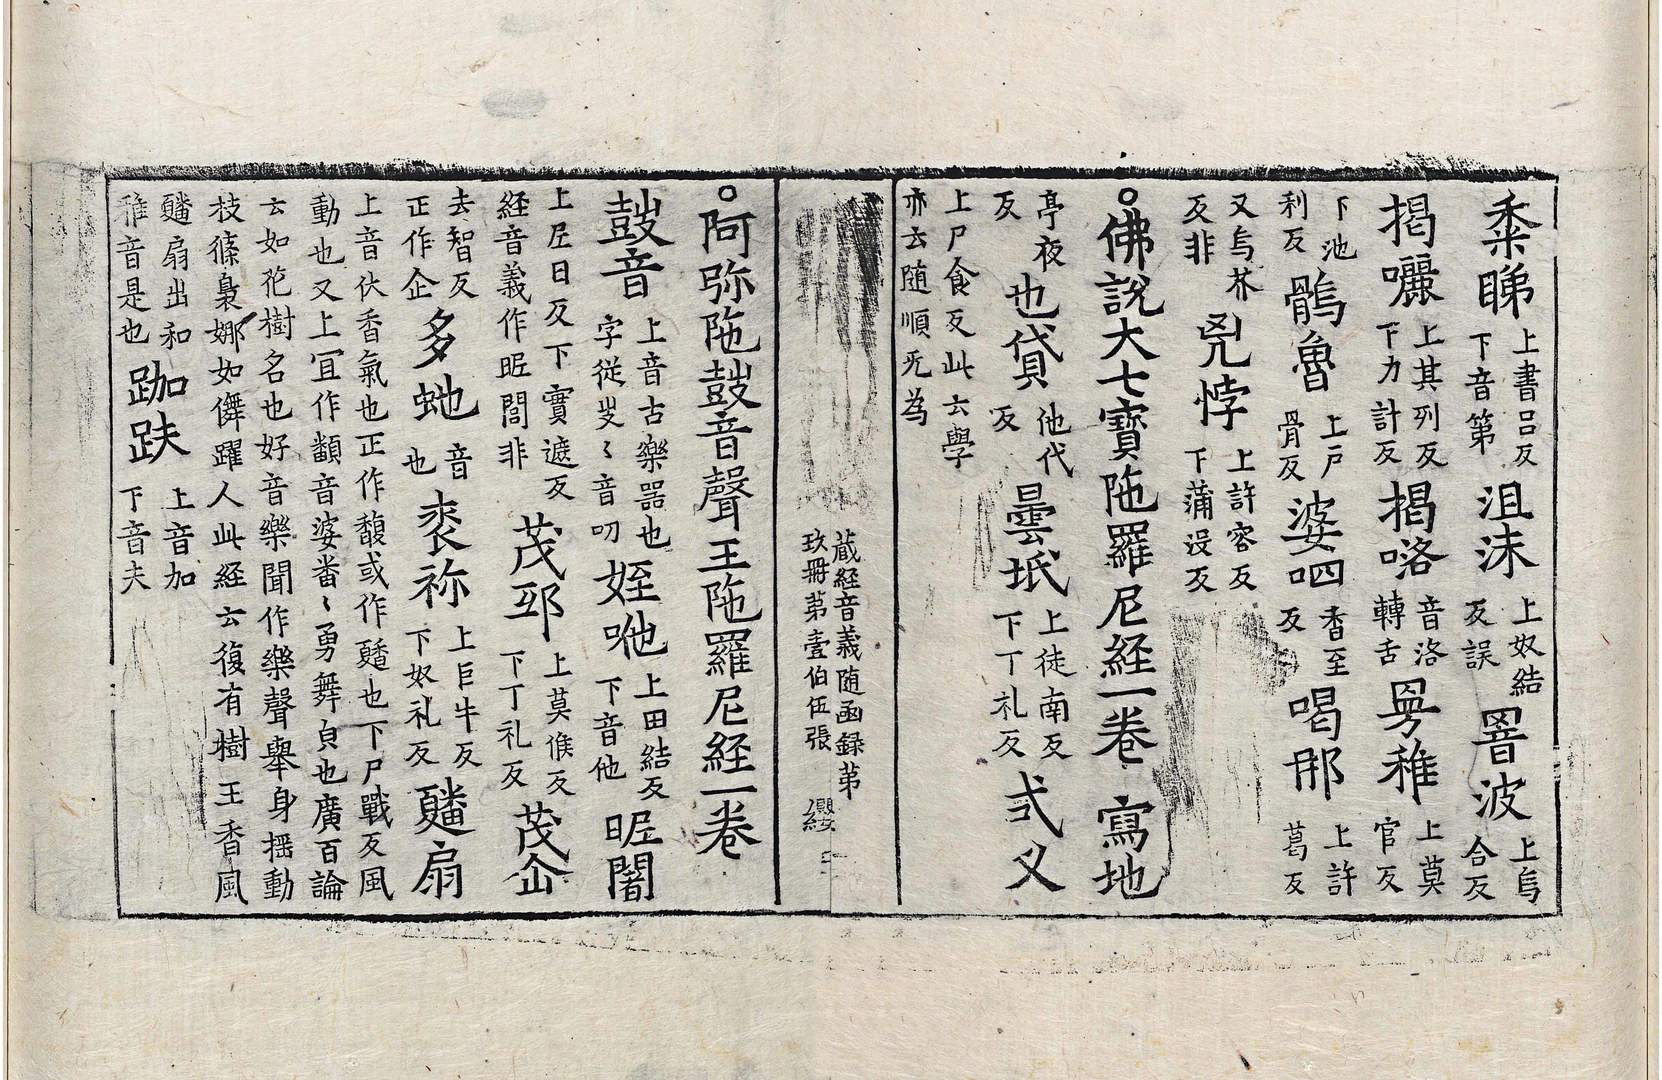 黍睇 上書吕反下音第 沮沫 上奴結反誤 罯波 上烏合反
揭囇 上其列反下力計反 揭咯 音洛轉舌 㝃稚 上莫官反
下池利反 鶻魯 上戸骨反 婆呬 香至反 喝那 上許葛反
又烏芥反非 兇悖 上許容反下蒲没反
○佛說大七寶陁羅尼經一卷 寫地
亭夜反 也貸 他代反 曇坻 上徒南反下丁礼反 弍叉
上尸食反此六學亦云随順无為
蔵經音義随函録苐
玖冊苐壹伯伍張 纓
○阿弥陁鼓音聲王陁羅尼經一卷
鼓音 上音古樂器也字従叟〻音叨 姪咃 上田結反下音他 昵闍
上尼日反下實遮反経音義作昵閻非 茂邳 上莫侯反下丁礼反 茂企
去智反正作企 多虵 音也 裘祢 上巨牛反下奴礼反 䬱扇
上音伏香氣也正作馥或作䬱也下尸戰反風
動也又上冝作䫫音婆畨〻勇舞皃也廣百論
云如花樹名也好音樂聞作樂聲舉身揺動
枝篠裊娜如儛躍人此経云復有樹王香風
䬱扇出和稚音是也 跏趺 上音加下音夫